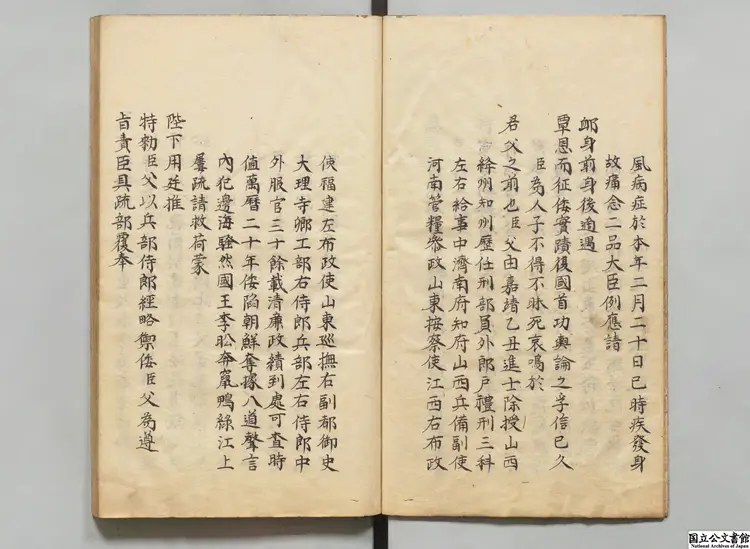 風病症於本年二月二十日巳時疾發身
故痛念二品大臣例應請
卹身前身後適遇
覃恩而征倭實蹟復國首功輿論之孚信已久
臣為人子不得不昧死哀鳴於
君父之前也臣父由嘉靖乙丑進士除授山西
絳州知州歷任刑部員外郎戶禮刑三科
左右給事中濟南府知府山西兵備副使
河南管糧參政山東按察使江西右布政
使福建左布政使山東巡撫右副都御史
大理寺卿工部右侍郎兵部左右侍郎中
外服官三十餘載清廉政績到處可查時
值萬曆二十年倭陷朝鮮奪據八道聲言
內犯邊海騷然國王李昖奔竄鴨綠江上
屢疏請救荷蒙
陛下用廷推
特勑臣父以兵部侍郎經略禦倭臣父為遵
旨責臣具疏部覆奉
国立公文書館
National Archives of Japan